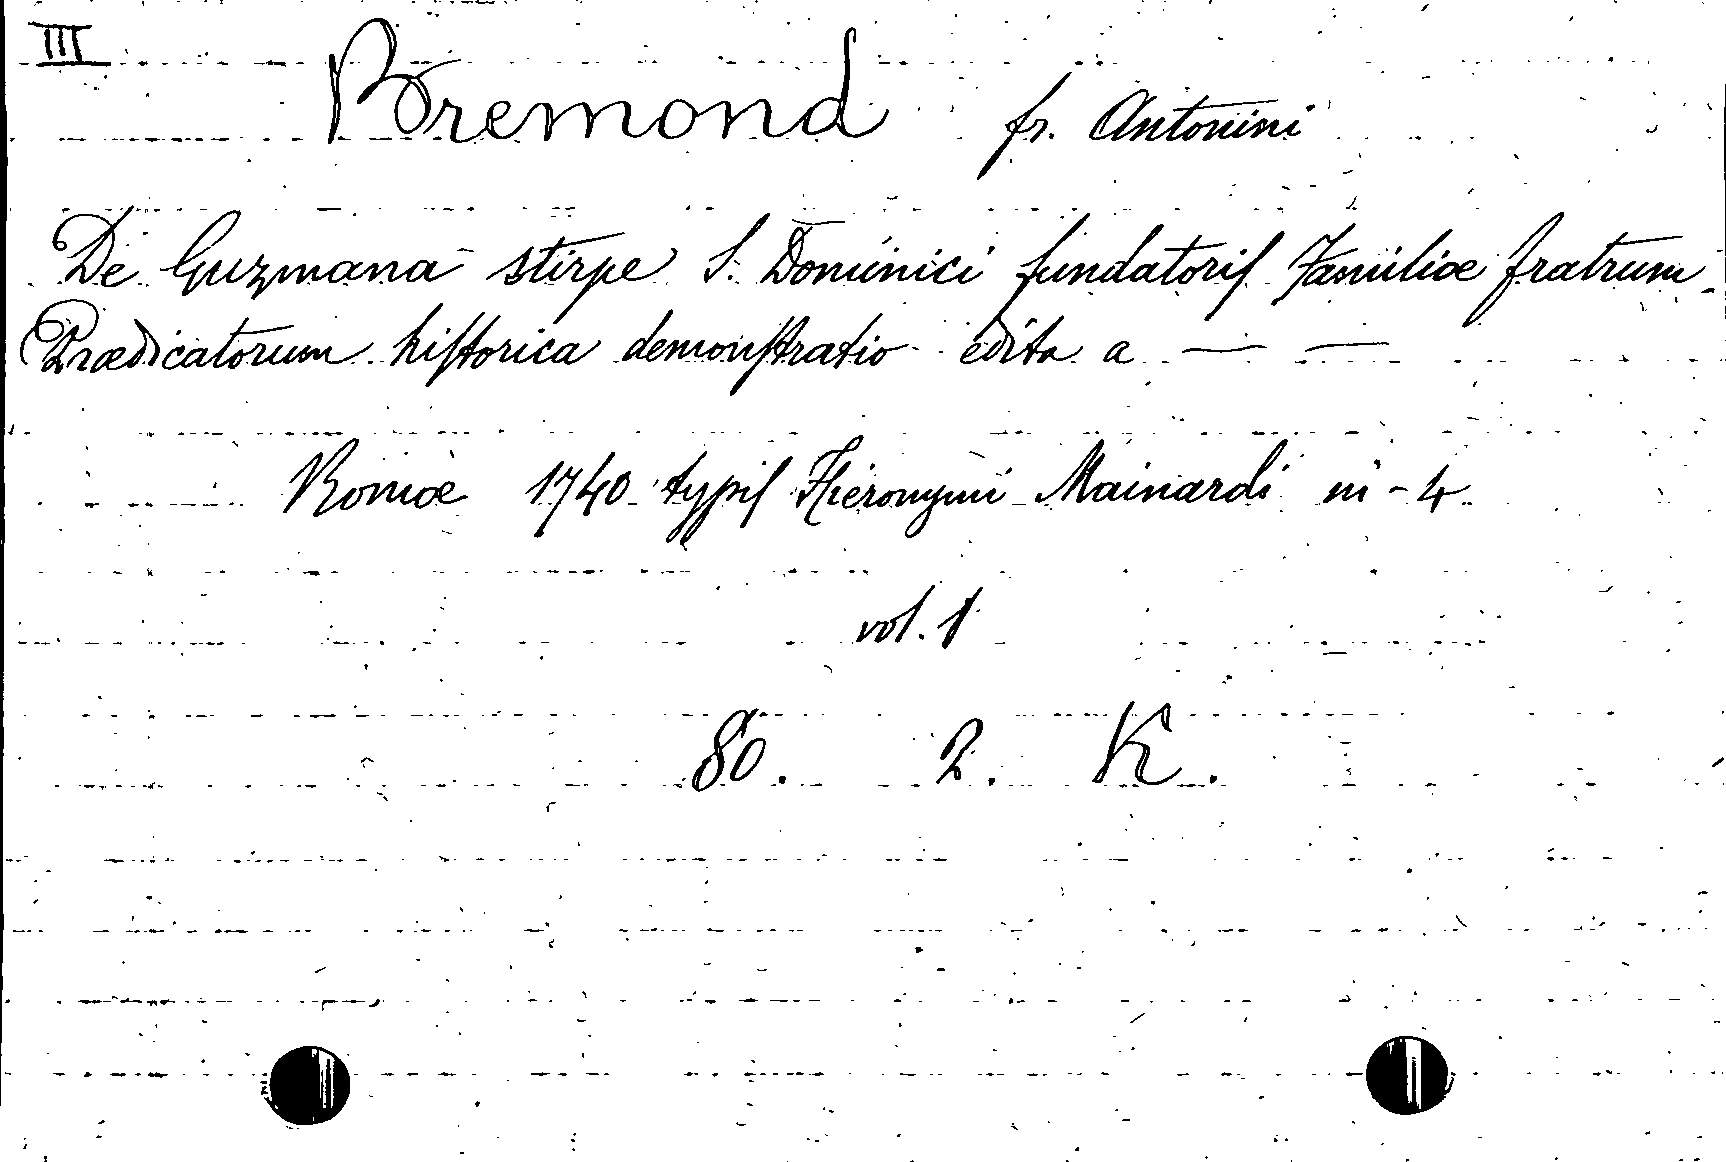 III
Bremond fr. Antonini
De Guzmana stirpe S. Dominici fundatoris Familiæ fratrum
Prædicatorum historica demonstratio edita a — —
Romæ 1740 typis Hieronymi Mainardi in-4
vol. 1
80. 2. K.